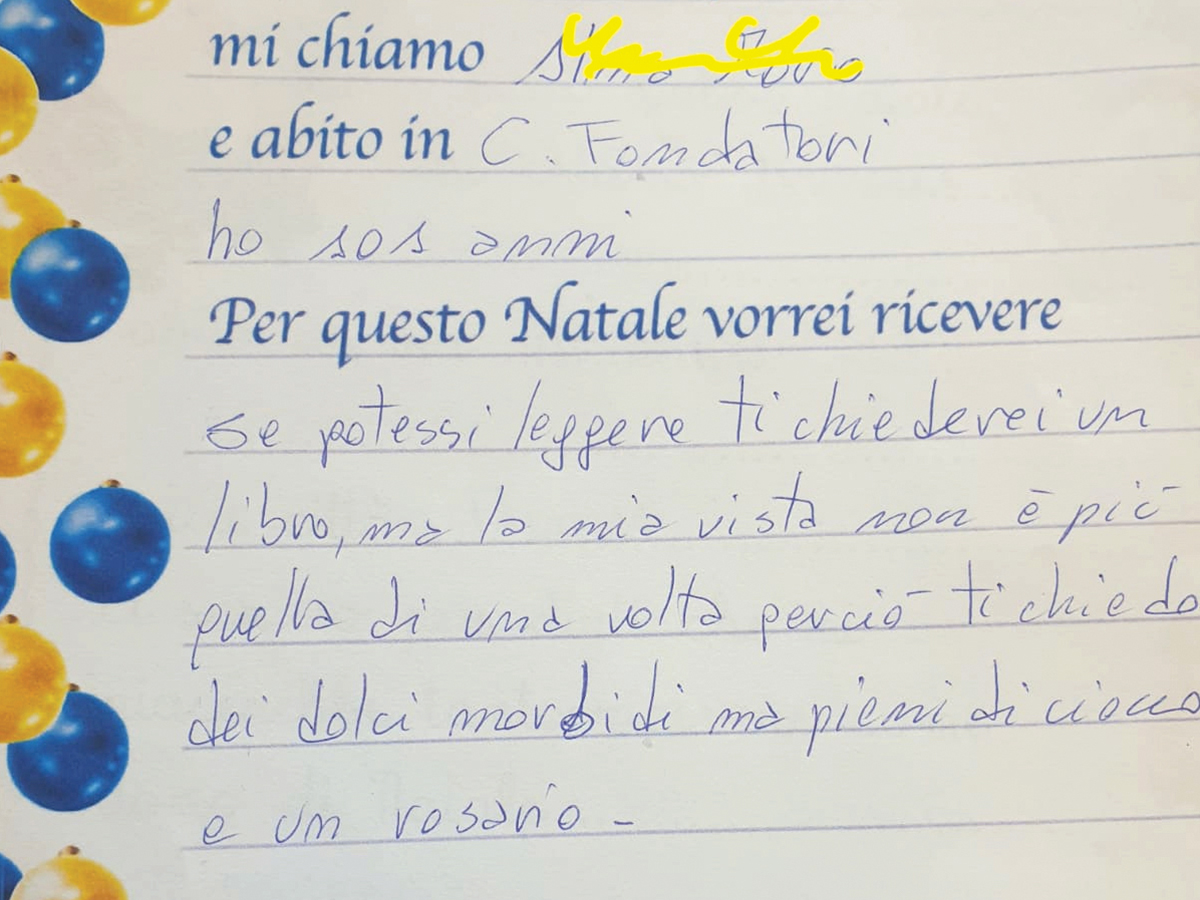 mi chiamo
e abito in C. Fondatori
ho 101 anni
Per questo Natale vorrei ricevere
se potessi leggere ti chiederei un
libro, ma la mia vista non è più
quella di una volta perciò ti chiedo
dei dolci morbidi ma pieni di ciocco
e un rosario -